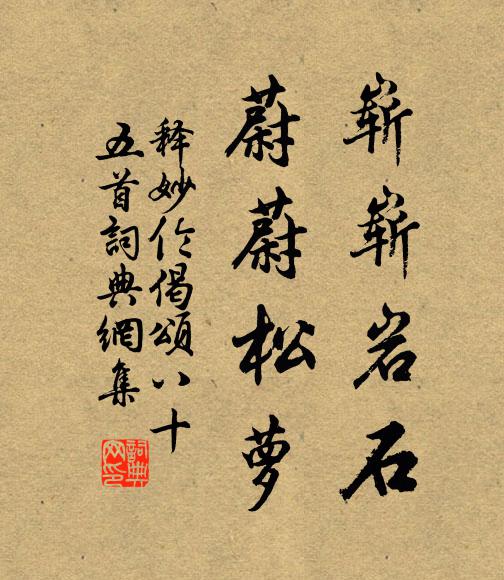 嶄嶄岩石
蔚蔚松萝
释妙伦偈頌八十
五首詞典網集
詞典
网印